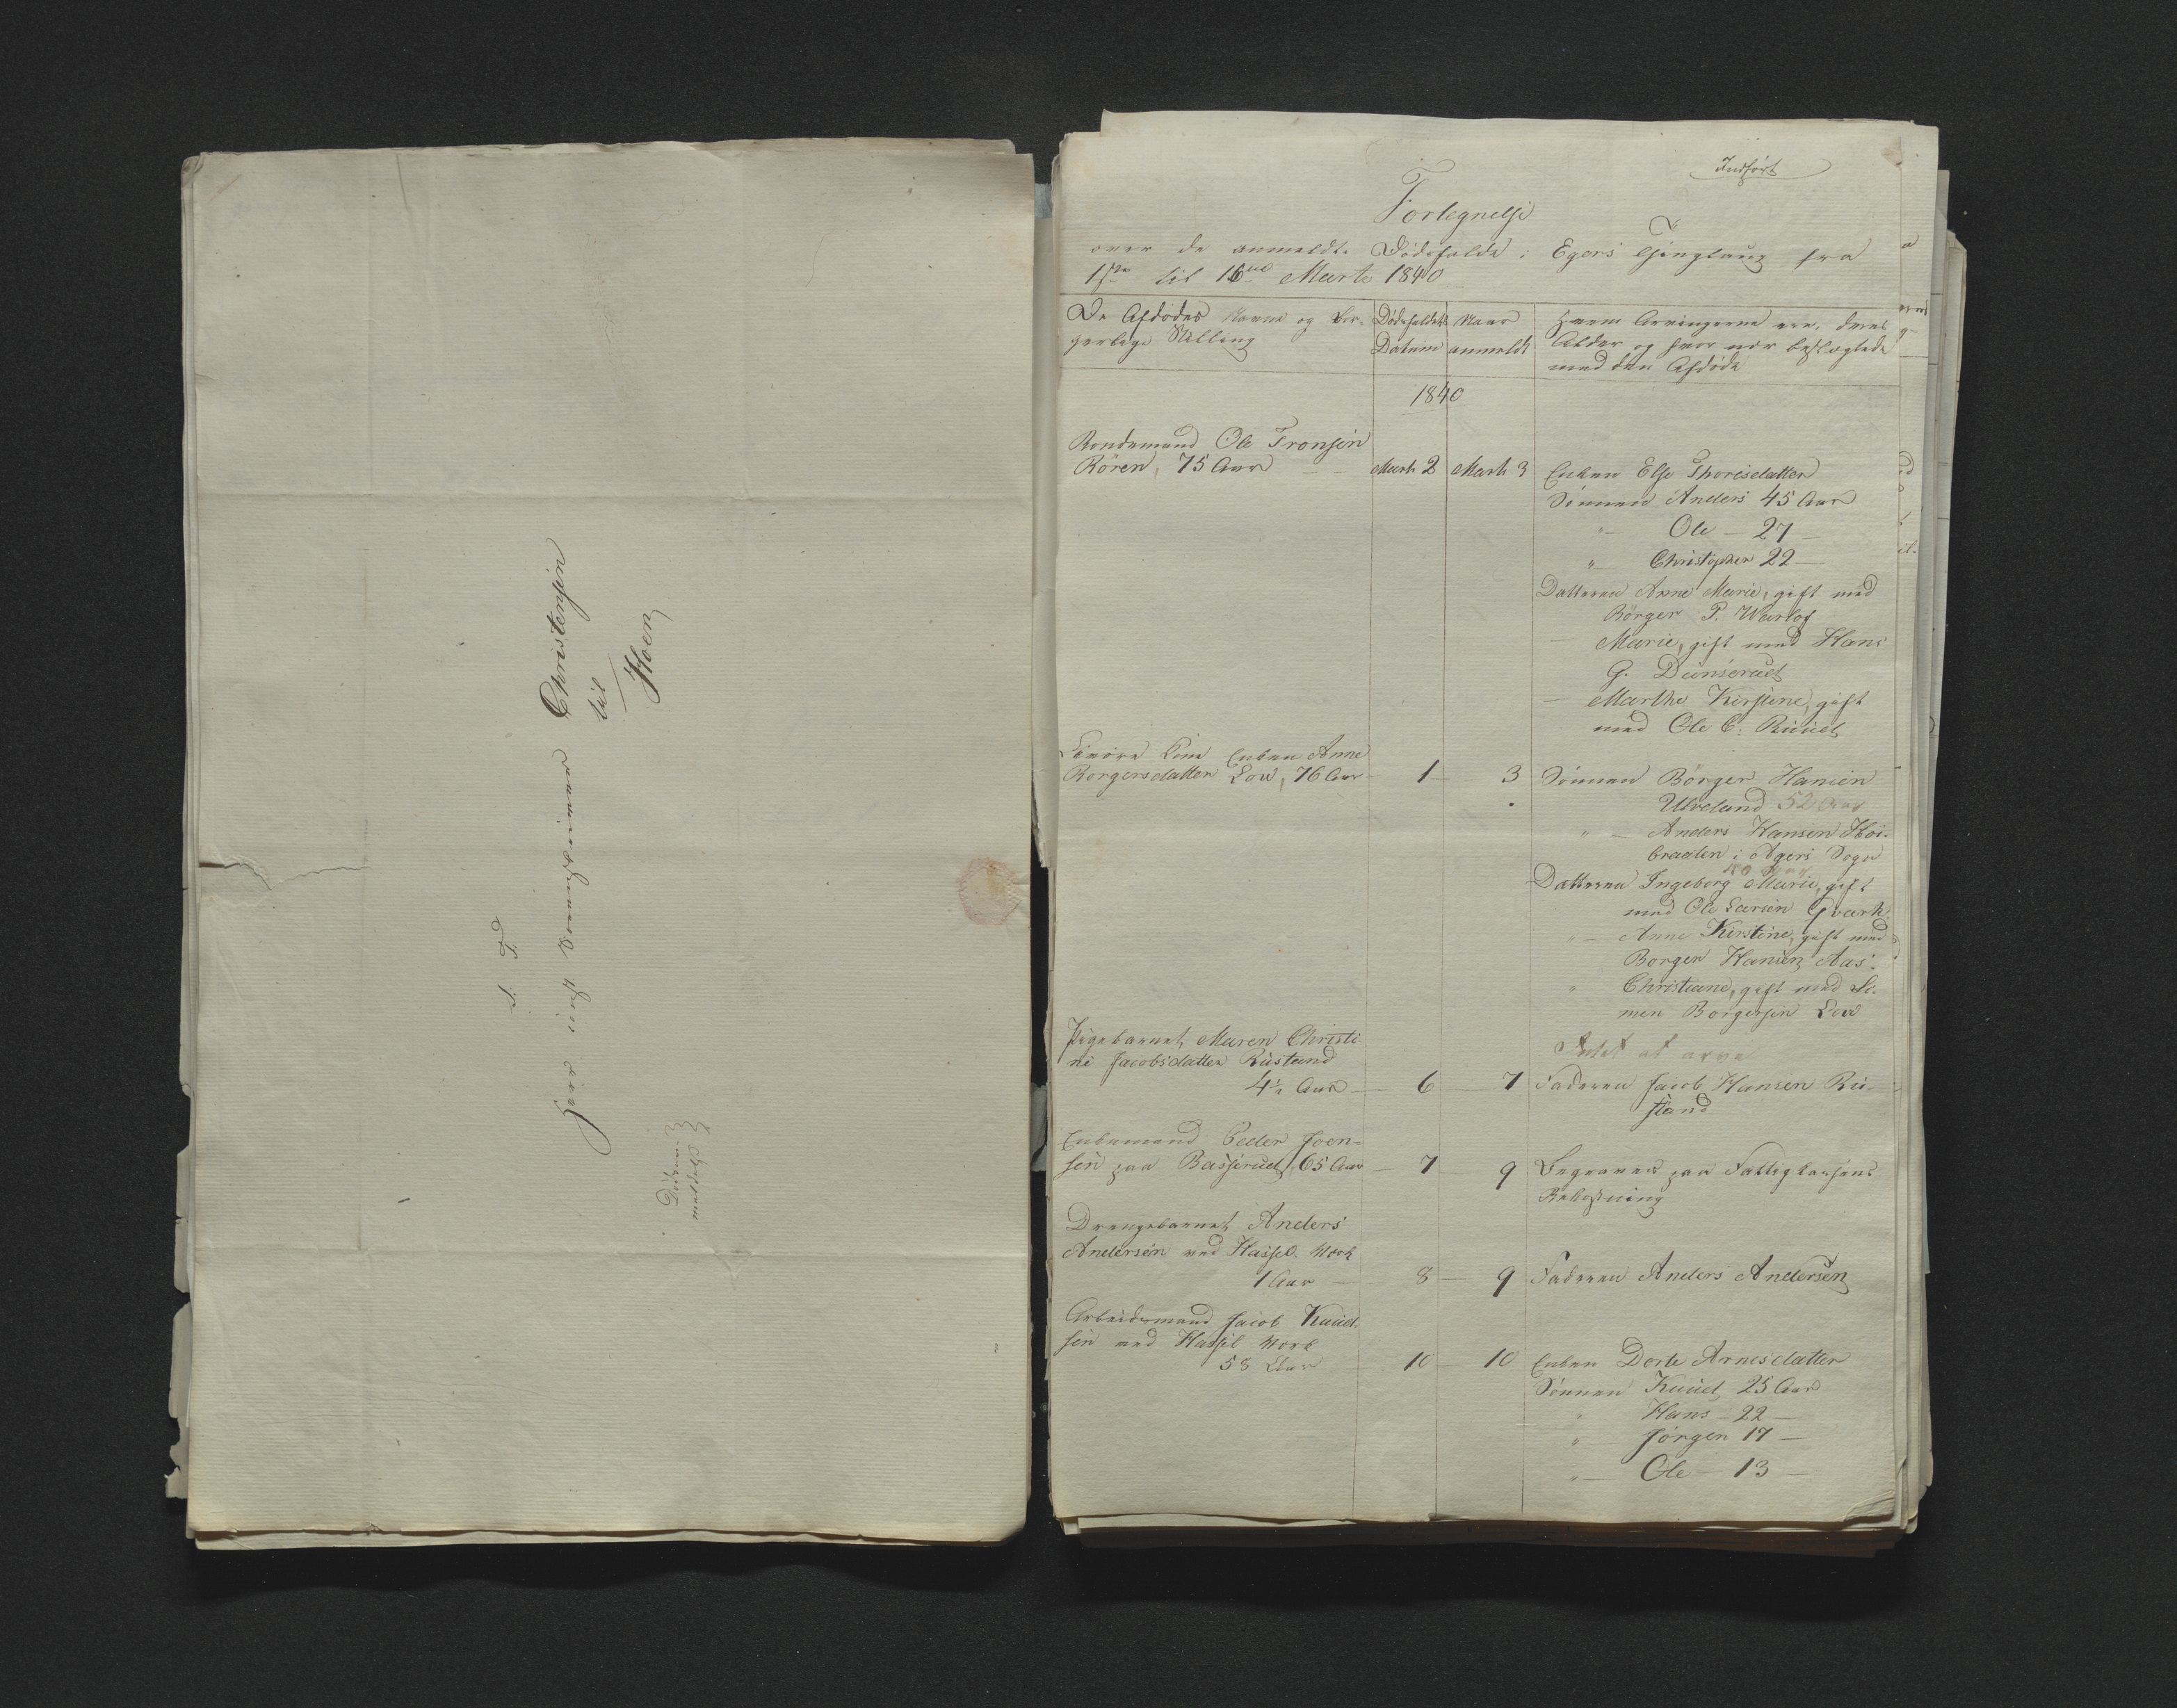 S. T.
Herr
Christensen
til
Hoen
Indført
Fortegnelse
over de anmeldte Dødsfalde i Egers Thinglaug fra
1ste til 16de Marts 1840
De Afdødes Navne og bor-
gerlige Stilling
Dødsfaldets
Datum
Naar
anmeldt
Hvem Arvingerne ere, deres
Alder og hvor nær beslægtede
med den Afdøde
1840
Bondemand Ole Tronsen
Røren, 75 Aar — Marts 2 Marts 3 Enken Else Thorisdatter
Sønnen Anders 45 Aar
" — Ole — 27 —
" — Christopher 22 —
Datteren Anne Marie, gift med
Börger P. Warlof
— Marie, gift med Hans
G. Dunserud
— Marthe Kirstine, gift
med Ole C. Ruud
Enken Anne
Borgersdatter Loe, 76 Aar — 1 — 3 Sønnen Börger Hansen
Ulveland 52 Aar
" — Anders Hansen Høi-
braaten i Agers Sogn
Datteren Ingeborg Marie, gift
med Ole Larsen Gvark
" — Anne Kirstine, gift med
Borger Hansen Aas
" Christiane, gift med Si-
men Borgersen Loe
Pigebarnet Maren Christi
ne Jacobsdatter Rustand
Intet at arve
4½ Aar — 6 — 7 Faderen Jacob Hansen Ru-
stand
Enkemand Peder Joen-
sen paa Basserud, 65 Aar 7 — 9 Begraven paa Fattigkassens
Bekostning
Drengebarnet Anders
Andersen ved Hassel Værk
1 Aar — 8 — 9 Faderen Anders Andersen
Arbeidsmand Jacob Knud-
sen ved Hassel Værk
58 Aar 10 — 10 Enken Dorte Arnesdatter
Sønnen Knud 25 Aar
" Hans — 22 —
" Jörgen 17 —
" — Ole — 13 —